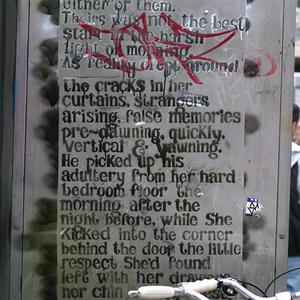 either of them.
Theirs was not the best
start in the harsh
light of morning.
As reality crept around
the cracks in her
curtains, strangers
arising, false memories
pre-dawning, quickly,
Vertical & Yawning.
He picked up his
adultery from her hard
bedroom floor the
morning after the
night before, while She
Kicked into the corner
behind the door the little
respect She'd found
left with her drawers
her chin